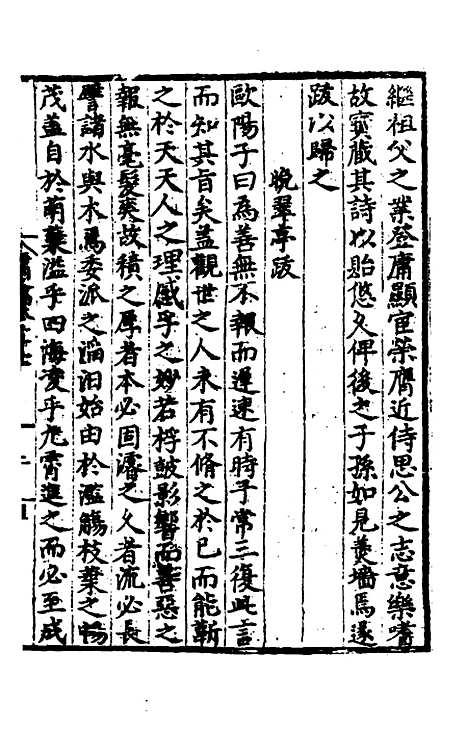 繼祖父之業登庸顯宦榮膺近侍思公之志意樂嗜
故寶藏其詩以貽悠久俾後之子孫如見羮墻焉遂
跋以歸之
晚翠亭跋
歐陽子曰為善無不報而遲速有時予常三復此言
而知其旨矣蓋觀世之人未有不脩之於已而能蘄
之於天天人之理感孚之妙若桴鼓影響而善惡之
報無毫髮爽故積之厚者本必固濬之乆者流必長
譬諸水與木焉委派之淪汨始由於濫觴枝葉之暢
茂蓋自於萌蘖溢乎四海凌乎九霄進之而必至成